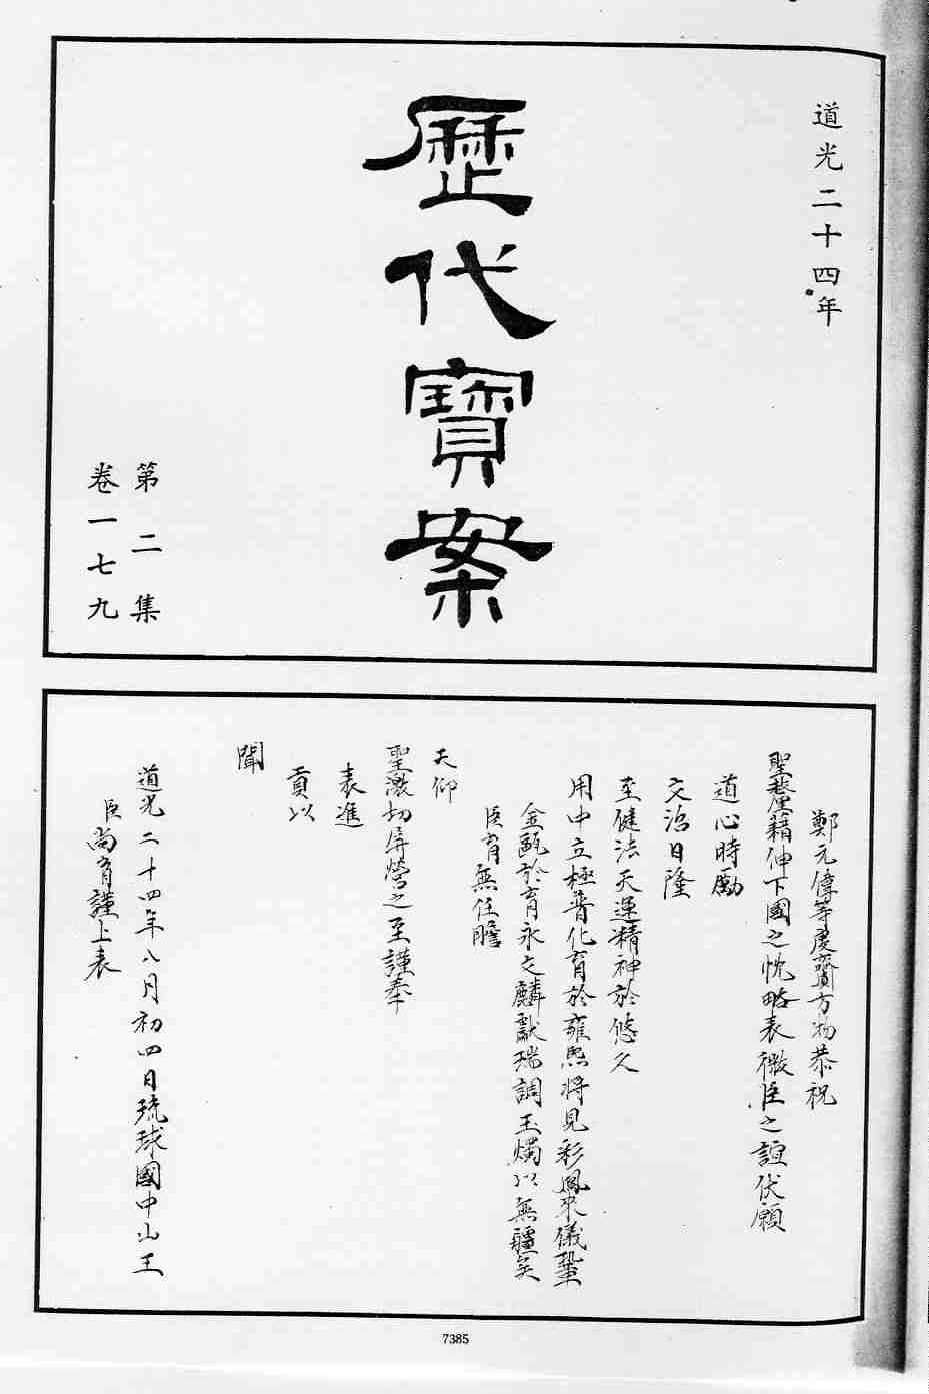 道光二十四年
歷代寶案
第二集
卷一七九
鄭元偉等虔齎方物恭祝
聖釐藉伸下國之忱略表微臣之誼伏願
道心時勵
文治日隆
至健法天運精神於悠久
用中立極普化育於雍熙將見彩鳳來儀鞏
金甌於有永文麟獻瑞調玉燭以無疆矣
臣育無任瞻
天仰
聖激切屏營之至謹奉
表進
貢以
聞
道光二十四年八月初四日琉球國中山王
臣尚育謹上表
7385